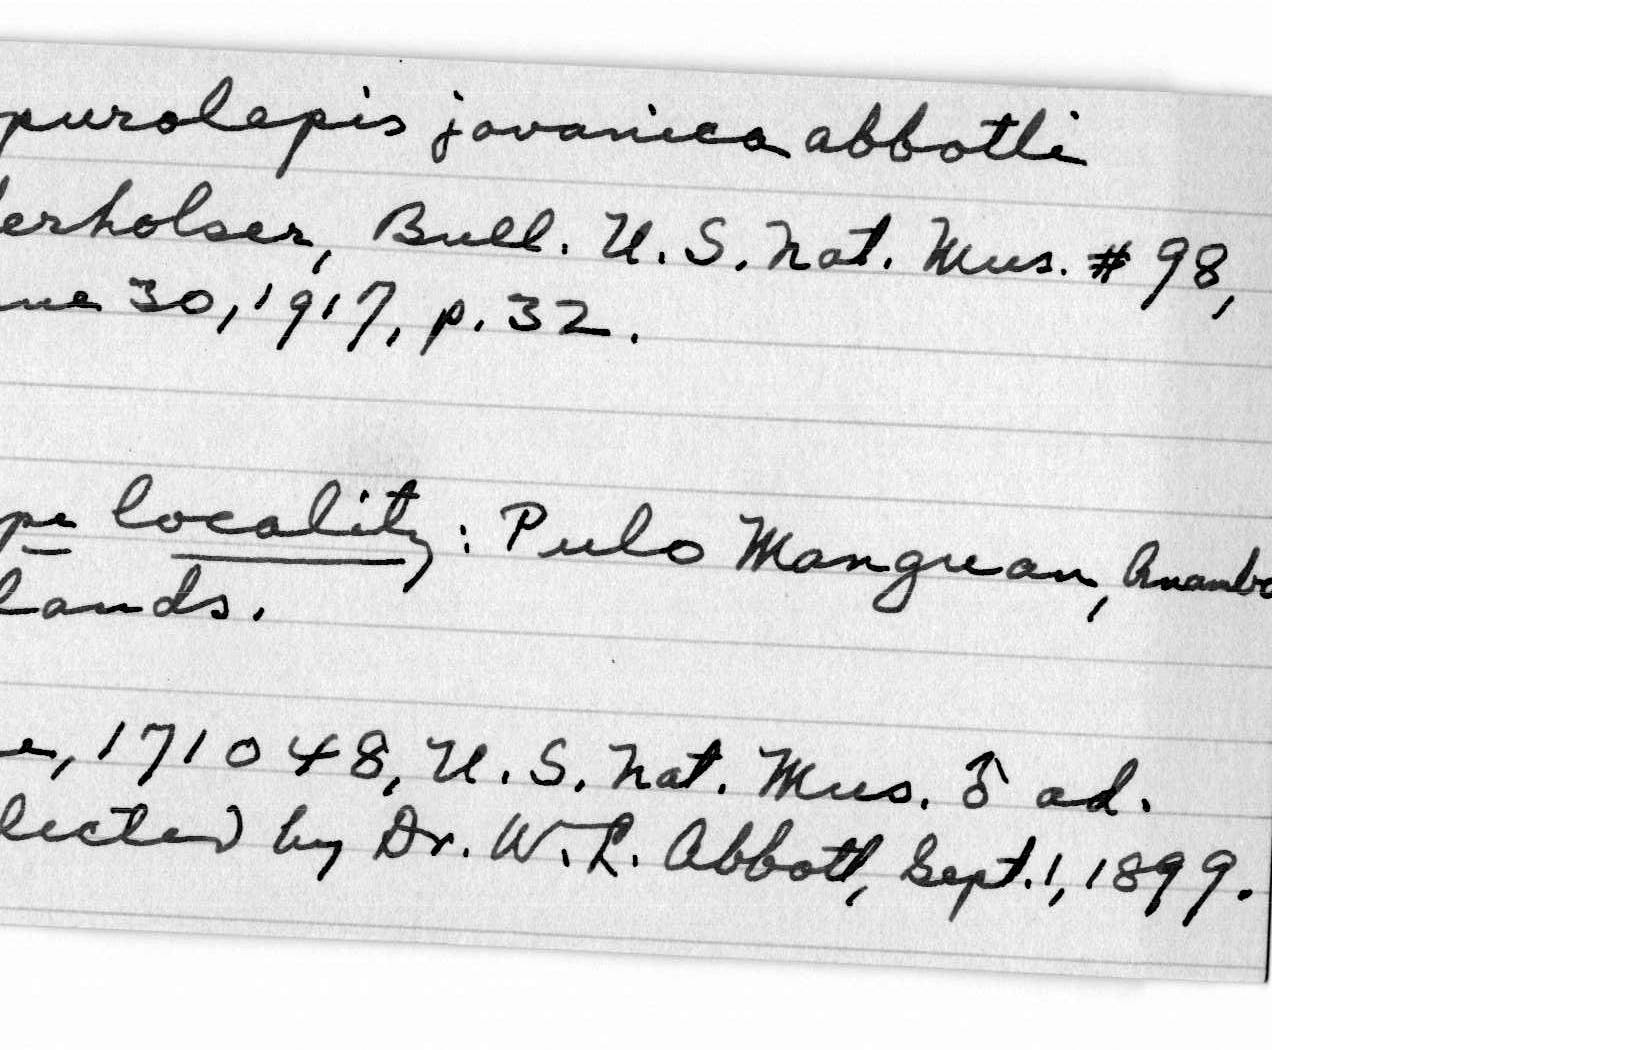 purolepis javanica abbotti
erholser, Bull. U.S. Nat. Mus. # 98,
ne 30, 1917, p. 32.
pe locality: Pulo Manguan, Anamba
lands.
e, 171048, U.S. Nat. Mus. ♂ ad.
lected by Dr. W. L. Abbott, Sept. 1, 1899.